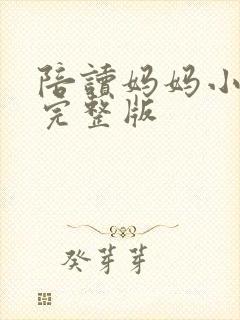 陪讀妈妈小
完整版
癸芽芽